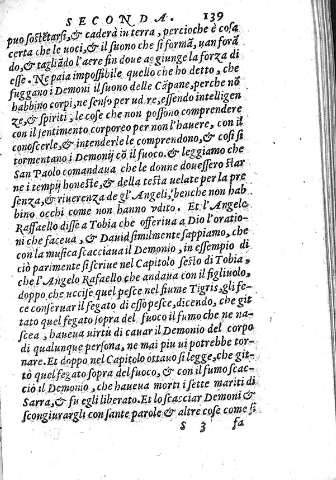 SECONDA. 139
puo sostētarsi, & caderà in terra, percioche è cosa
certa che le uoci, & il suono che si formā, uan forā
do, & tagliādo l'aere fin doue aggiunge la forza di
esse. Ne paia impossibile quello che ho detto, che
fuggano i Demoni il suono delle Cāpane, perche nō
habbino corpi, ne senso per udire, essendo intelligen
ze, & spiriti, le cose che non possono comprendere
con il sentimento corporeo per non l'hauere, con il
conoscerle, & intenderle le comprendono, & cosi si
tormentano i Demonij cō il fuoco. & leggiamo che
San Paolo comandaua che le donne douessero star
ne i tempij honeste, & della testa uelate per la pre
senza, & riuerenza de gl'Angeli, benche non hab
bino occhi come non hanno vdito. Et l'Angelo
Raffaello disse a Tobia che offeriua a Dio l'oratio-
ni che faceua, & Dauid similmente sappiamo, che
con la musica scacciaua il Demonio, in essempio di
ciò parimente si scriue nel Capitolo sesto di Tobia,
che l'Angelo Rafaello che andaua con il figliuolo,
doppo che uccise quel pesce nel fiume Tigris, gli fe-
ce conseruar il fegato di esso pesce, dicendo, che git
tato quel fegato sopra del fuoco il fumo che ne na-
scea, haueua uirtù di cauar il Demonio del corpo
di qualunque persona, ne mai piu ui potrebbe tor-
nare. Et doppo nel Capitolo ottauo si legge, che git-
tò quel fegato sopra del fuoco, & con il fumo scac-
ciò il Demonio, che haueua morti i sette mariti di
Sarra, & fu egli liberato. Et lo scacciar Demoni &
scongiurargli con sante parole & altre cose come si
S 3 fa